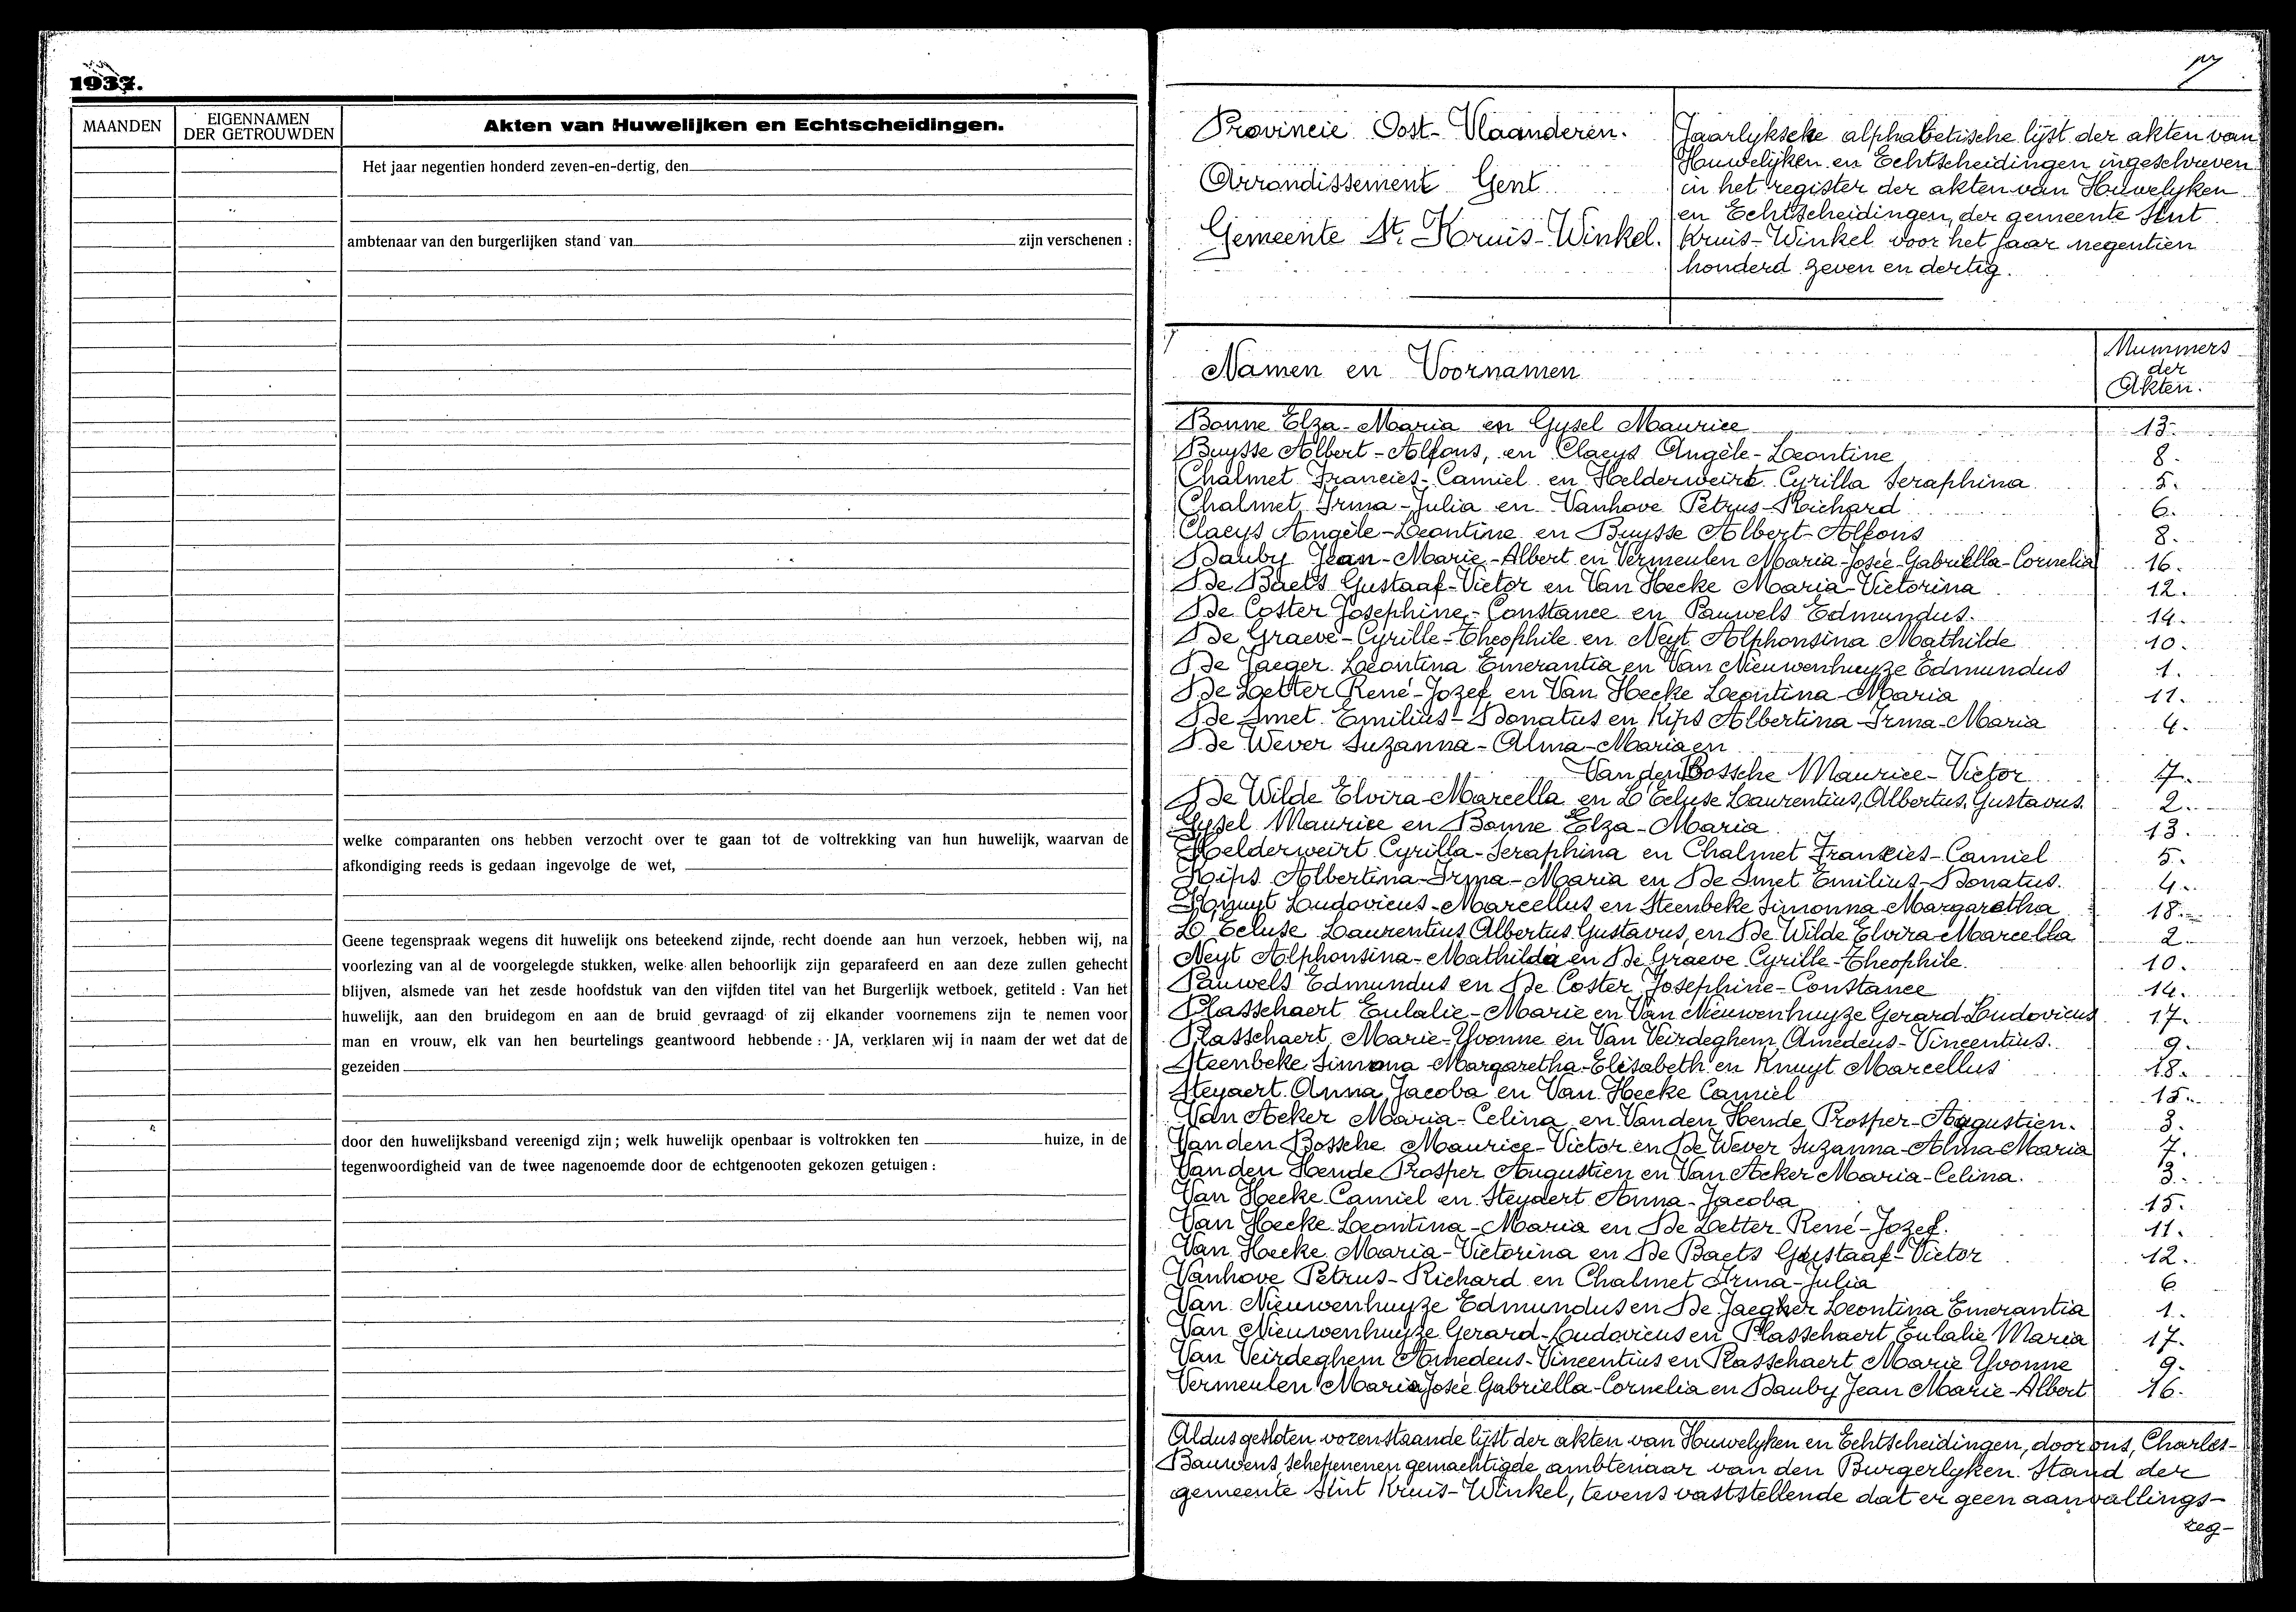 1937.
MAANDEN
EIGENNAMEN
DER GETROUWDEN
Akten van Huwelijken en Echtscheidingen.
Het jaar negentien honderd zeven-en-dertig, den
ambtenaar van den burgerlijken stand van zijn verschenen :
welke comparanten ons hebben verzocht over te gaan tot de voltrekking van hun huwelijk, waarvan de
afkondiging reeds is gedaan ingevolge de wet,
Geene tegenspraak wegens dit huwelijk ons beteekend zijnde, recht doende aan hun verzoek, hebben wij, na
voorlezing van al de voorgelegde stukken, welke allen behoorlijk zijn geparafeerd en aan deze zullen gehecht
blijven, alsmede van het zesde hoofdstuk van den vijfden titel van het Burgerlijk wetboek, getiteld : Van het
huwelijk, aan den bruidegom en aan de bruid gevraagd of zij elkander voornemens zijn te nemen voor
man en vrouw, elk van hen beurtelings geantwoord hebbende : JA, verklaren wij in naam der wet dat de
gezeiden
door den huwelijksband vereenigd zijn; welk huwelijk openbaar is voltrokken ten huize, in de
tegenwoordigheid van de twee nagenoemde door de echtgenooten gekozen getuigen :
Provincie Oost-Vlaanderen.
Arrondissement Gent
Gemeente St. Kruis-Winkel.
Jaarlyksche alphabetische lijst der akten van
Huwelijken en Echtscheidingen ingeschreven
in het register der akten van Huwelyken
en Echtscheidingen, der gemeente Sint
Kruis-Winkel voor het jaar negentien
honderd zeven en dertig.
Namen en Voornamen
Nummers
der
Akten.
Bonne Elza-Maria en Gysel Maurice 13.
Buysse Albert-Alfons, en Claeys Angèle-Leontine 8.
Chalmet Francies-Camiel en Helderweirt Cyrilla Seraphina 5.
Chalmet Irma-Julia en Vanhove Petrus-Richard 6.
Claeys Angèle-Leontine en Buysse Albert-Alfons 8.
Dauby Jean-Marie-Albert en Vermeulen Maria-Josée-Gabriëlla-Cornelia 16.
De Baets Gustaaf-Victor en Van Hecke Maria-Victorina 12.
De Coster Josephine-Constance en Pauwels Edmundus. 14.
De Graeve-Cyrille-Theophile en Neyt Alphonsina Mathilde 10.
De Jaeger Leontina Emerantia en Van Nieuwenhuyze Edmundus 1.
De Letter René-Jozef en Van Hecke Leontina-Maria 11.
De Smet Emilius-Donatus en Kips Albertina-Irma-Maria 4.
De Wever Suzanna-Alma-Maria en
Van den Bossche Maurice-Victor 7.
De Wilde Elvira-Marcella en L'Ecluse Laurentius, Albertus, Gustavus. 2.
Gysel Maurice en Bonne Elza-Maria 13.
Helderweirt Cyrilla-Seraphina en Chalmet Francies-Camiel 5.
Kips Albertina-Irma-Maria en De Smet Emilius-Donatus. 4.
Knuyt Ludovicus-Marcellus en Steenbeke Simonna-Margaretha 18.
L'Ecluse Laurentius Albertus Gustavus, en De Wilde Elvira-Marcella 2.
Neyt Alphonsina-Mathilda en De Graeve Cyrille-Theophile. 10.
Pauwels Edmundus en De Coster Josephine-Constance 14.
Plasschaert Eulalie-Marie en Van Nieuwenhuyze Gerard-Ludovicus 17.
Plasschaert Marie-Yvonne en Van Veirdeghem Amedeus-Vincentius. 9.
Steenbeke Simonna Margaretha-Elisabeth en Knuyt Marcellus 18.
Steyaert Anna Jacoba en Van Hecke Camiel 15.
Van Acker Maria-Celina en Van den Hende Prosper-Augustien. 3.
Van den Bossche Maurice-Victor en De Wever Suzanna-Alma-Maria 7.
Van den Hende Prosper Augustien en Van Acker Maria-Celina. 3.
Van Hecke Camiel en Steyaert Anna-Jacoba 15.
Van Hecke Leontina-Maria en De Letter René-Jozef. 11.
Van Hecke Maria-Victorina en De Baets Gustaaf-Victor 12.
Vanhove Petrus-Richard en Chalmet Irma-Julia 6
Van Nieuwenhuyze Edmundus en De Jaegher Leontina Emerantia 1.
Van Nieuwenhuyze Gerard-Ludovicus en Plasschaert Eulalie Maria 17.
Van Veirdeghem Amedeus-Vincentius en Plasschaert Marie Yvonne 9.
Vermeulen Maria Josée Gabriella-Cornelia en Dauby Jean Marie-Albert 16.
Aldus gesloten vorenstaande lijst der akten van Huwelyken en Echtscheidingen, door ons, Charles-
Bauwens, schepenen gemachtigde ambtenaar van den Burgerlyken Stand der
gemeente Sint Kruis-Winkel, tevens vaststellende dat er geen aanvullings-
reg-